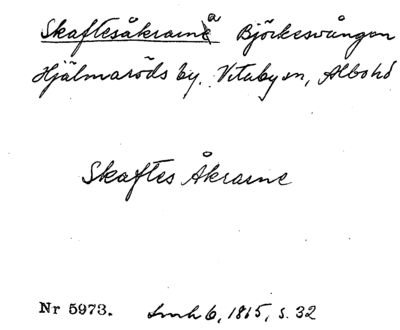 Skaftesåkrarna Björkesvången
Hjälmaröds by. Vitaby sn, Albo hd
Skaftes Åkrarne
Nr 5973. Lmh 6, 1815, s. 32